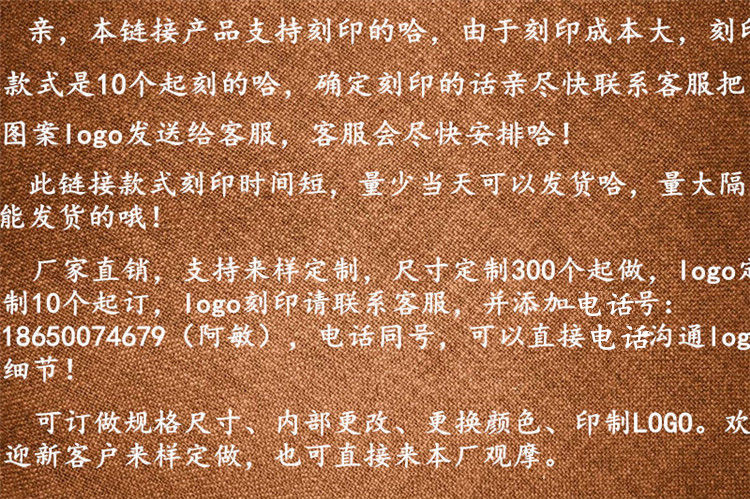 亲，本链接产品支持刻印的哈，由于刻印成本大，刻印
款式是10个起刻的哈，确定刻印的话亲尽快联系客服把
图案logo发送给客服，客服会尽快安排哈！
此链接款式刻印时间短，量少当天可以发货哈，量大隔
能发货的哦！
厂家直销，支持来样定制，尺寸定制300个起做，logo定
制10个起订，logo刻印请联系客服，并添加电话号：
18650074679（阿敏），电话同号，可以直接电话沟通log
细节！
可订做规格尺寸、内部更改、更换颜色、印制LOGO。欢
迎新客户来样定做，也可直接来本厂观摩。